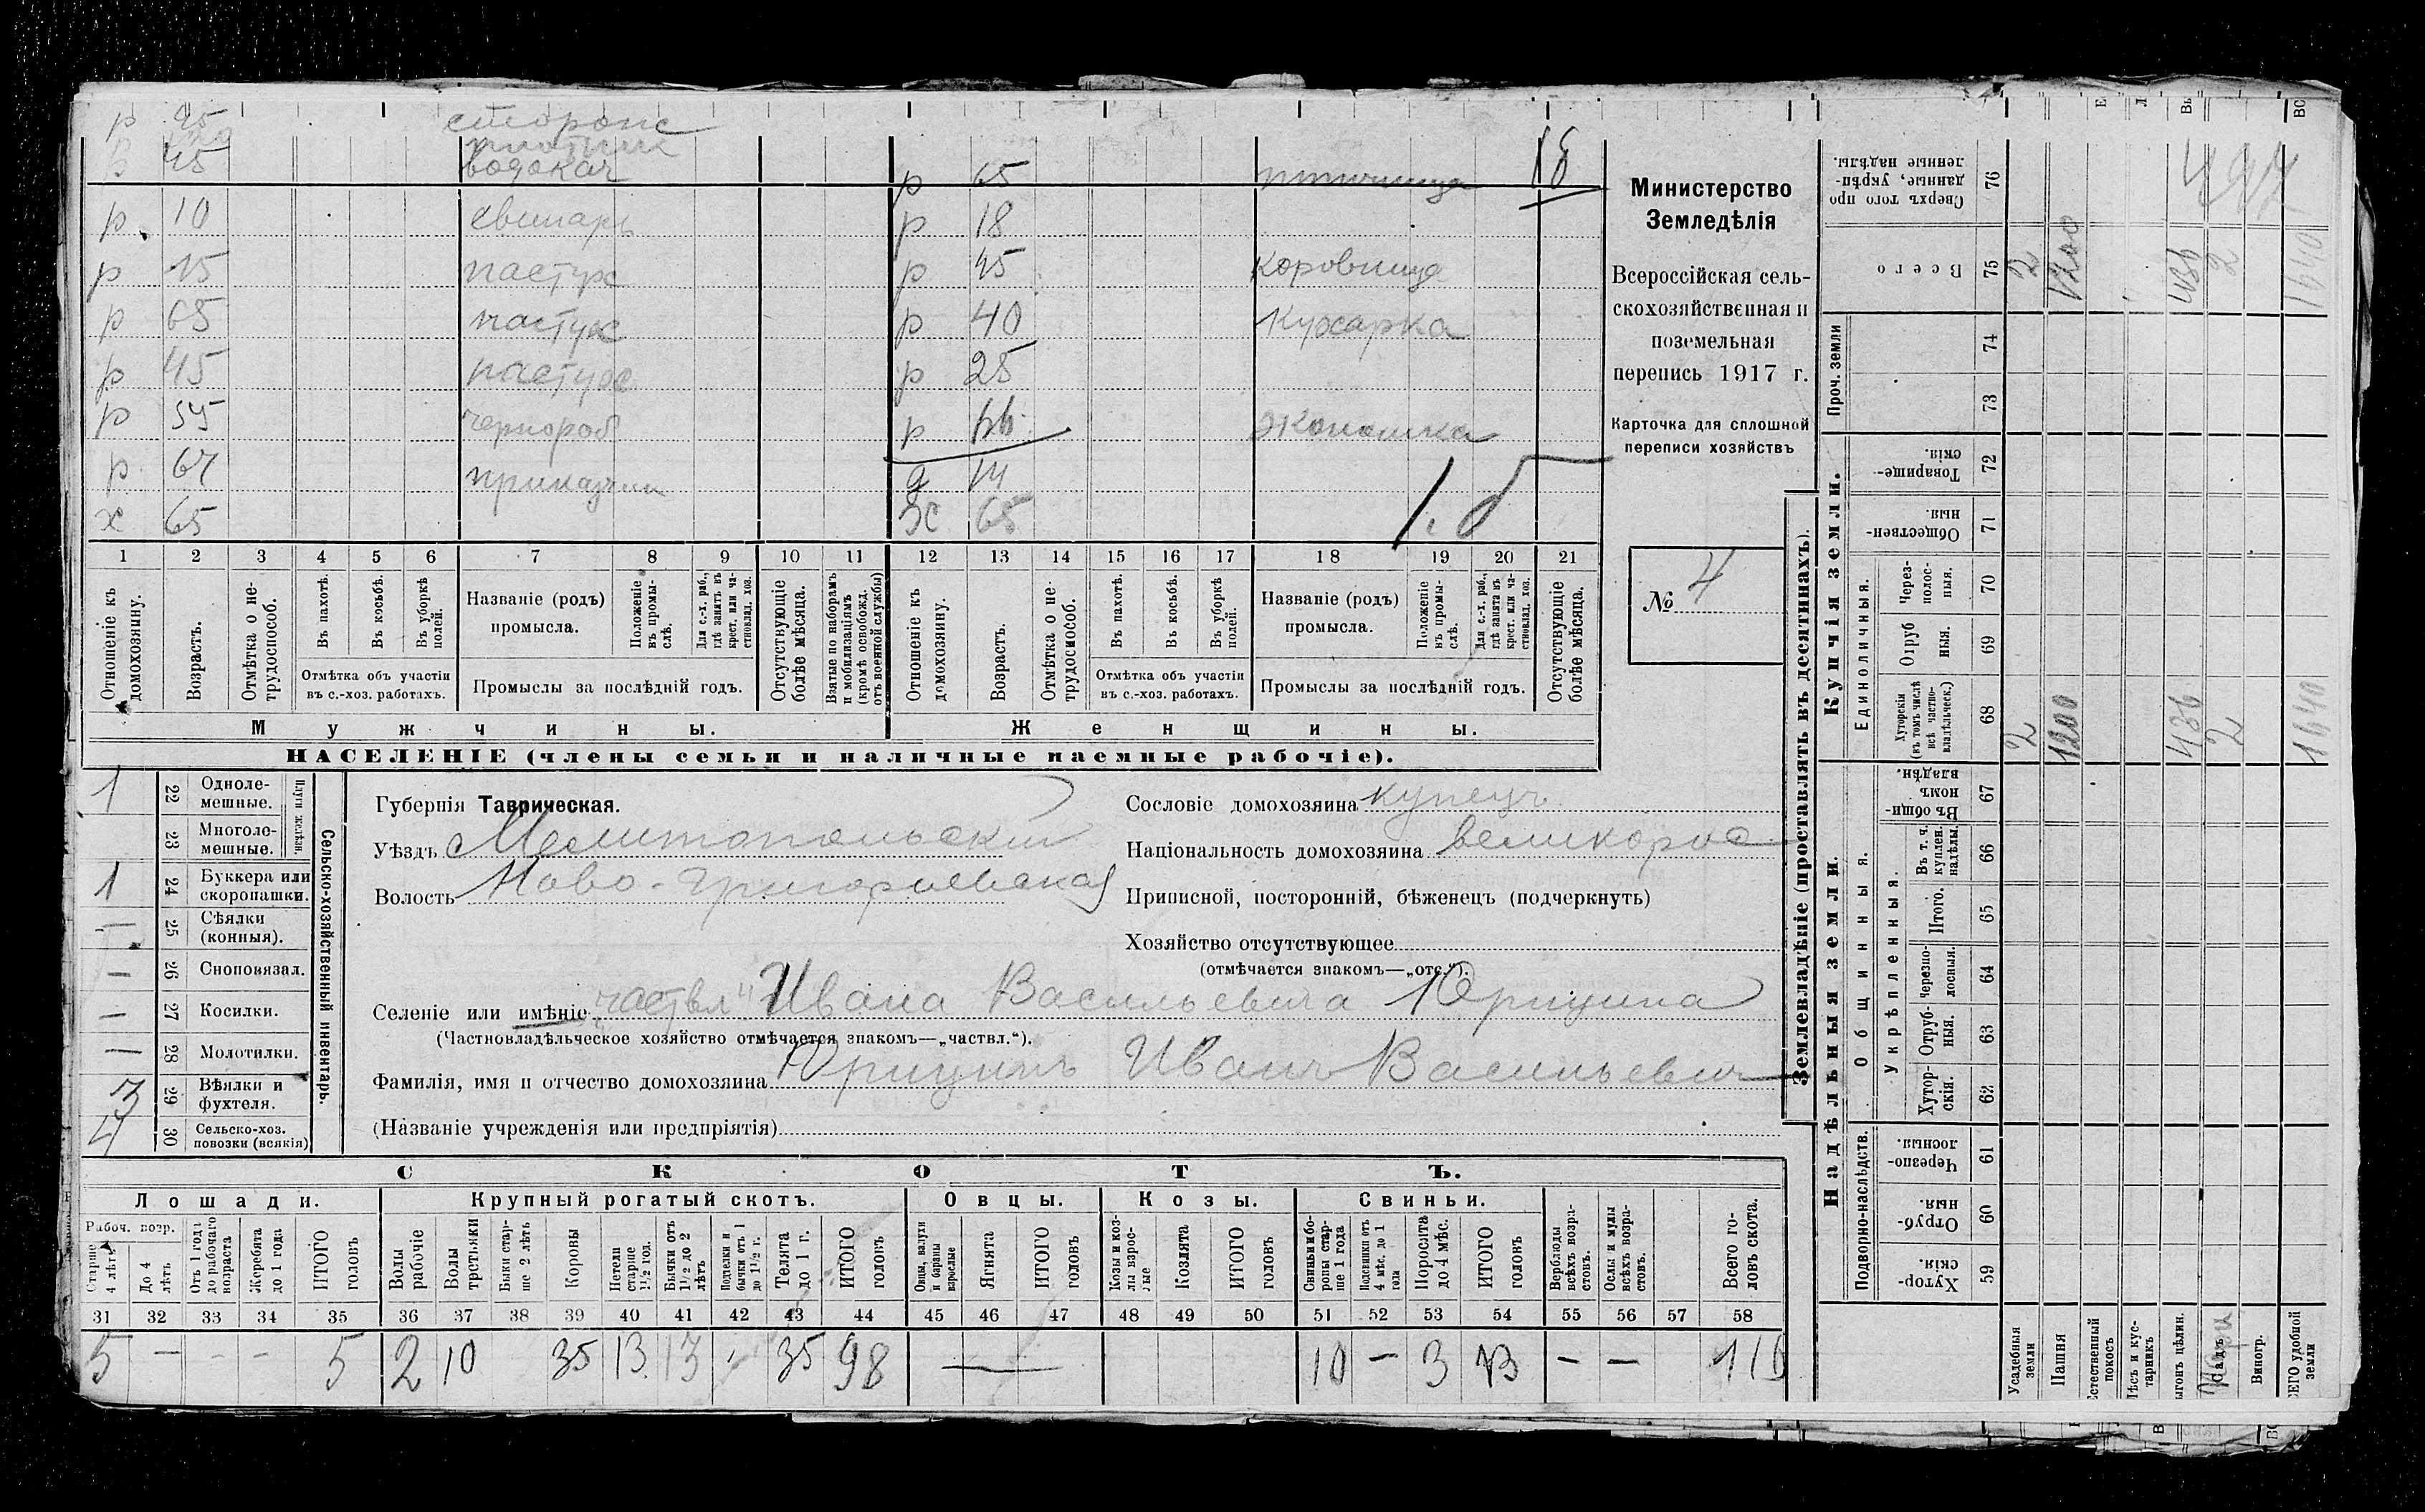 р 45 сторож
45 водокач р 65 птичница 18
р 10 свинарь р 18
р 15 пастух р 45 коровница
р 65 пастух р 40 Кухарка
р 45 пастух р 25
р 55 чернораб р экономка
р 67 приказчик д 14
х 65 Ж 65
1 2 3 4 5 6 7 8 9 10 11 12 13 14 15 16 17 18 19 20 21
Отношеніе къ домохозяину.
Возрастъ.
Отмѣтка о не-трудоспособ.
Въ пахотѣ.
Въ косьбѣ.
Въ уборкѣ полей.
Отмѣтка объ участіи въ с.-хоз. работахъ.
Названіе (родъ) промысла.
Положеніе въ промы-слѣ.
Для с.-х. раб., гдѣ занятъ въ крест. или ча-стновлад. хоз.
Промыслы за послѣдній годъ.
Отсутствующіе болѣе мѣсяца.
Взятые по наборамъ и мобилизаціямъ (кромѣ освобожд. отъ военной службы)
Отношеніе къ домохозяину.
Возрастъ.
Отмѣтка о не-трудоспособ.
Въ пахотѣ.
Въ косьбѣ.
Въ уборкѣ полей.
Отмѣтка объ участіи въ с.-хоз. работахъ.
Названіе (родъ) промысла.
Положеніе въ промы-слѣ.
Для с.-х. раб., гдѣ занята въ крест. или ча-стновлад. хоз.
Промыслы за послѣдній годъ.
Отсутствующіе болѣе мѣсяца.
Мужчины. Женщины.
НАСЕЛЕНІЕ (члены семьи и наличные наемные рабочіе).
Министерство
Земледѣлія
Всероссійская сель-
скохозяйственная и
поземельная
перепись 1917 г.
Карточка для сплошной
переписи хозяйствъ
№ 4
1 22 Одноле-мешные.
23 Многоле-мешные.
Плуги желѣзн.
1 24 Буккера или скоропашки.
— 25 Сѣялки (конныя).
— 26 Сноповязал.
— 27 Косилки.
— 28 Молотилки.
3 29 Вѣялки и фухтеля.
4 30 Сельско-хоз. повозки (всякія)
Сельско-хозяйственный инвентарь.
Губернія Таврическая.
Уѣздъ Мелитопольский
Волость Ново-Григорьевская
Сословіе домохозяина купецъ
Національность домохозяина великорос
Приписной, посторонній, бѣженецъ (подчеркнуть)
Хозяйство отсутствующее
(отмѣчается знакомъ—„отс.“).
Селеніе или имѣніе „частвл“ Ивана Васильевича Юрицина
(Частновладѣльческое хозяйство отмѣчается знакомъ—„частвл.“).
Фамилія, имя и отчество домохозяина Юрицинъ Иванъ Васильевич
(Названіе учрежденія или предпріятія)
СКОТЪ.
Лошади. Крупный рогатый скотъ. Овцы. Козы. Свиньи.
Рабоч. возр.
Старше 4 лѣтъ
До 4 лѣтъ
Отъ 1 года до рабочаго возраста
Жеребята до 1 года
ИТОГО головъ
Волы рабочіе
Волы третьяки
Быки стар-ше 2 лѣтъ
Коровы
Нетели старше 1½ год.
Бычки отъ 1½ до 2 лѣтъ
Подтелки и бычки отъ 1 до 1½ г.
Телята до 1 г.
ИТОГО головъ
Овцы, валухи и бараны взрослые
Ягнята
ИТОГО головъ
Козы и коз-лы взрос-лые
Козлята
ИТОГО головъ
Свиньи и бо-ровы стар-ше 1 года
Подсвинки отъ 4 мѣс. до 1 года
Поросята до 4 мѣс.
ИТОГО головъ
Верблюды всѣхъ возра-стовъ.
Ослы и мулы всѣхъ возра-стовъ.
Всего го-ловъ скота.
31 32 33 34 35 36 37 38 39 40 41 42 43 44 45 46 47 48 49 50 51 52 53 54 55 56 57 58
5 — - - 5 2 10 35 13 13 35 98 — 10 — 3 13 — — 116
Землевладѣніе (проставлять въ десятинахъ).
Надѣльныя земли. Купчія земли. Проч. земли
Подворно-наслѣдств.
Общинныя.
Укрѣпленныя.
Единоличныя.
Хутор-скія. 59
Отруб-ныя. 60
Черезпо-лосныя. 61
Хутор-скія. 62
Отруб-ныя. 63
Черезпо-лосныя. 64
Итого. 65
Въ т. ч. куплен. надѣлы. 66
Въ общи-номъ владѣн. 67
Хуторскія (въ томъ числѣ всѣ частно-владѣльческ.) 68
Отруб ныя. 69
Через-полос-ныя. 70
Обществен-ныя. 71
Товарище-скія. 72
73
74
Всего 75
Сверхъ того про данные, укрѣп-ленные надѣлы. 76
Усадебныя земли 2 2
Пашня 1200 1200
Естественный покосъ
Лѣсъ и кус-тарникъ
Выгонъ цѣлин. 436 436
Садъ 2 2
Виногр.
ВСЕГО удобной земли 1640 1640